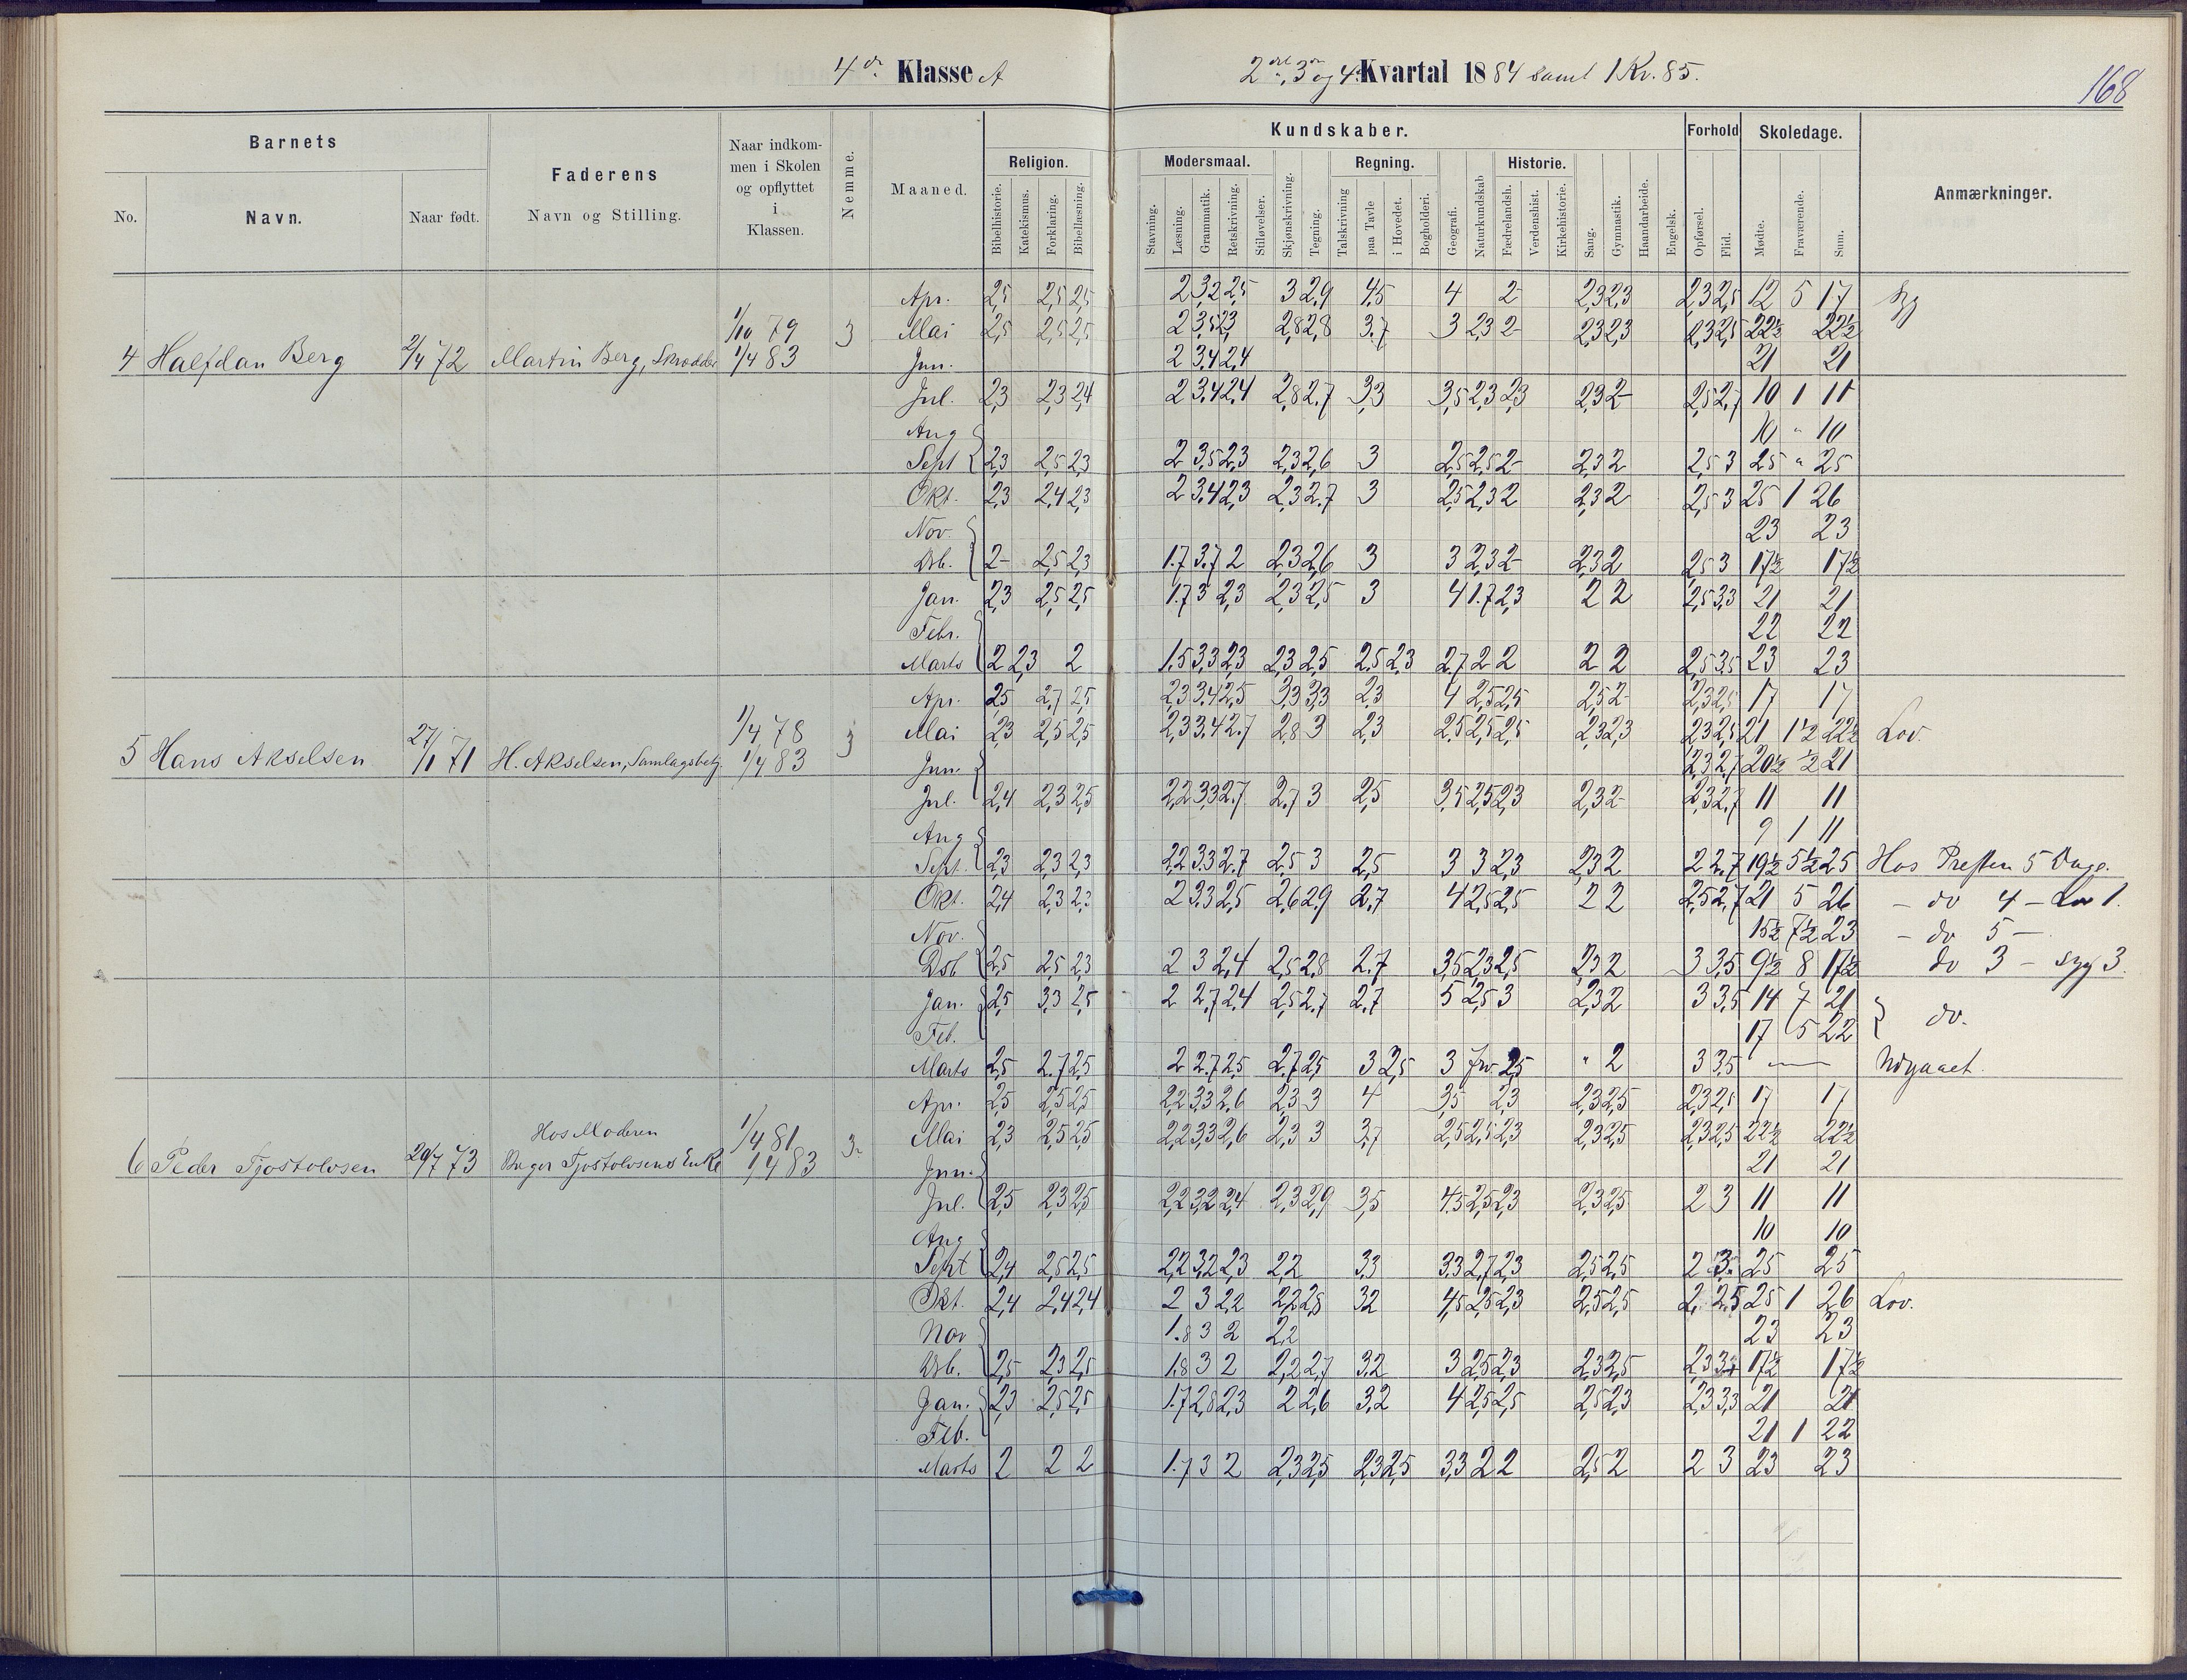 4de Klasse A
2det, 3die og 4de Kvartal 1884 samt 1 Kv. 85.
168
Barnets
Faderens
Naar indkom-
men i Skolen
og opflyttet
i
Klassen.
Nemme.
Maaned.
Kundskaber.
Forhold
Skoledage.
Anmærkninger.
No.
Navn.
Naar født.
Navn og Stilling.
Religion.
Modersmaal.
Regning.
Historie.
Bibelhistorie.
Katekismus.
Forklaring.
Bibellæsning.
Stavning.
Læsning.
Grammatik.
Retskrivning.
Stiløvelser.
Skjønskrivning.
Tegning.
Talskrivning
paa Tavle
i Hovedet.
Bogholderi.
Geografi.
Naturkundskab
Fædrelandsh.
Verdenshist.
Kirkehistorie.
Sang.
Gymnastik.
Haandarbeide.
Engelsk.
Opførsel.
Flid.
Mødte.
Fraværende.
Sum.
Apr. 2,5 2,5 2,5 2 3,2 2,5 3 2,9 4,5 4 2- 2,3 2,3 2,3 2,5 12 5 17 syg
1/10 79 3 Mai 2,5 2,5 2,5 2 3,5 2,3 2,8 2,8 3.7 3 2,3 2- 2,3 2,3 2,3 2,5 22½ 22½
4 Halfdan Berg 2/4 72 Martin Berg, Skrædder 1/4 83 Jun. 2 3,4 2,4 21 21
Jul. 2,3 2,3 2,4 2 3,4 2,4 2,8 2,7 3,3 3,5 2,3 2,3 2,3 2- 2,5 2,7 10 1 11
Aug 10 " 10
Sept 2,3 2,5 2,3 2 3,5 2,3 2,3 2,6 3 2,5 2,5 2- 2,3 2 2,5 3 25 " 25
Okt. 2,3 2,4 2,3 2 3,4 2,3 2,3 2,7 3 2,5 2,3 2 2,3 2 2,5 3 25 1 26
Nov. 23 23
Dsb. 2- 2,5 2,3 1.7 3.7 2 2,3 2,6 3 3 2,3 2- 2,3 2 2,5 3 17½ 17½
Jan. 2,3 2,5 2,5 1.7 3 2,3 2,3 2,5 3 4 1.7 2,3 2 2 2,5 3,3 21 21
Febr. 22 22
Marts 2 2,3 2 1.5 3,3 2,3 2,3 2,5 2,5 2,3 2.7 2 2 2 2 2,5 3,5 23 23
Apr. 2,5 2,7 2,5 2,3 3.4 2,5 3,3 3,3 2,3 4 2,5 2,5 2,5 2- 2,3 2,5 17 17
1/4 78 3 Mai 2,3 2,5 2,5 2,3 3.4 2.7 2,8 3 2,3 2,5 2,5 2,5 2,3 2,3 2,3 2,5 21 1½ 22½ Lov.
5 Hans Akselsen 27/1 71 H. Akselsen, Samlagsbetj. 1/4 83 Jun. 2,3 2,7 20½ ½ 21
Jul. 2,4 2,3 2,5 2,2 3,3 2.7 2.7 3 2,5 3,5 2,5 2,3 2,3 2- 2,3 2,7 11 11
Aug 9 1 11
Sept. 2,3 2,3 2,3 2,2 3.3 2.7 2,5 3 2,5 3 3 2,3 2,3 2 2 2,7 19½ 5½ 25 Hos Presten 5 Dage.
Okt. 2,4 2,3 2,3 2 3.3 2,5 2,6 2,9 2,7 4 2,5 2,5 2 2 2,5 2,7 21 5 26 - do 4 - Lov 1.
Nov. 15½ 7½ 23 - do 5 -
Dsb 2,5 2,5 2,3 2 3 2,4 2,5 2,8 2.7 3,5 2,3 2,5 2,3 2 3 3,5 9½ 8 17½ do 3 - syg 3.
Jan. 2,5 3,3 2,5 2 2,7 2,4 2,5 2.7 2.7 5 2,5 3 2,3 2 3 3,5 14 7 21 do.
Feb. 17 5 22
Marts 2,5 2.7 2,5 2 2.7 2,5 2.7 2,5 3 2,5 3 2,5 " 2 3 3,5 — Udgaaet.
Apr. 2,5 2,5 2,5 2,2 3,3 2,6 2,3 3 4 3,5 2,3 2,3 2,5 2,3 2,5 17 17
Hos Moderen 1/4 81 3- Mai 2,3 2,5 2,5 2,2 3,3 2,6 2,3 3 3,7 2,5 2,5 2,3 2,3 2,5 2,3 2,5 22½ 22½
6 Peder Tjostolvsen 29/7 73 Tjostolvsens Enke 1/4 83 Jun. 21 21
Jul. 2,5 2,3 2,5 2,2 3,2 2,4 2,3 2,9 3,5 4.5 2,5 2,3 2,3 2,5 2 3 11 11
Aug 10 10
Sept 2,4 2,5 2,5 2,2 3,2 2,3 2,2 3,3 3,3 2,7 2,3 2,5 2,5 2 3. 25 25
Okt. 2,4 2,4 2,4 2 3 2,2 2,2 2,8 3,2 4,5 2,5 2,3 2,5 2,5 2. 2,5 25 1 26 Lov.
Nov 1.8 3 2 2,2 23 23
Dsb. 2,5 2,3 2,5 1.8 3 2 2,2 2,7 3.2 3 2,5 2,3 2,3 2,5 2,3 3 17½ 17½
Jan. 2,3 2,5 2,5 1.7 2,8 2,3 2 2,6 3,2 4 2,5 2,5 2,5 2,3 2,3 3,3 21 21
Feb. 21 1 22
Marts 2 2 2 1.7 3 2 2,3 2,5 2,3 2,5 3,3 2 2 2,5 2 2 3 23 23